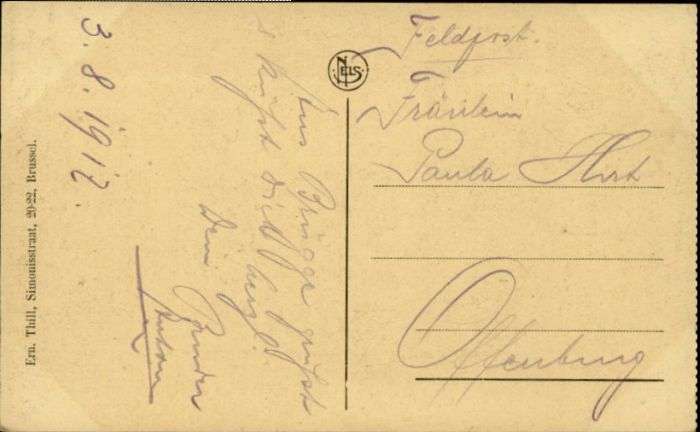 3.8.1917.
Aus Brügge grüßt
& küßt Dich herzl.
Dein
Bruder
Anton
NELS
Feldpost.
Fräulein
Paula
Offenburg
Ern. Thill, Simonisstraat, 20-22, Brussel.